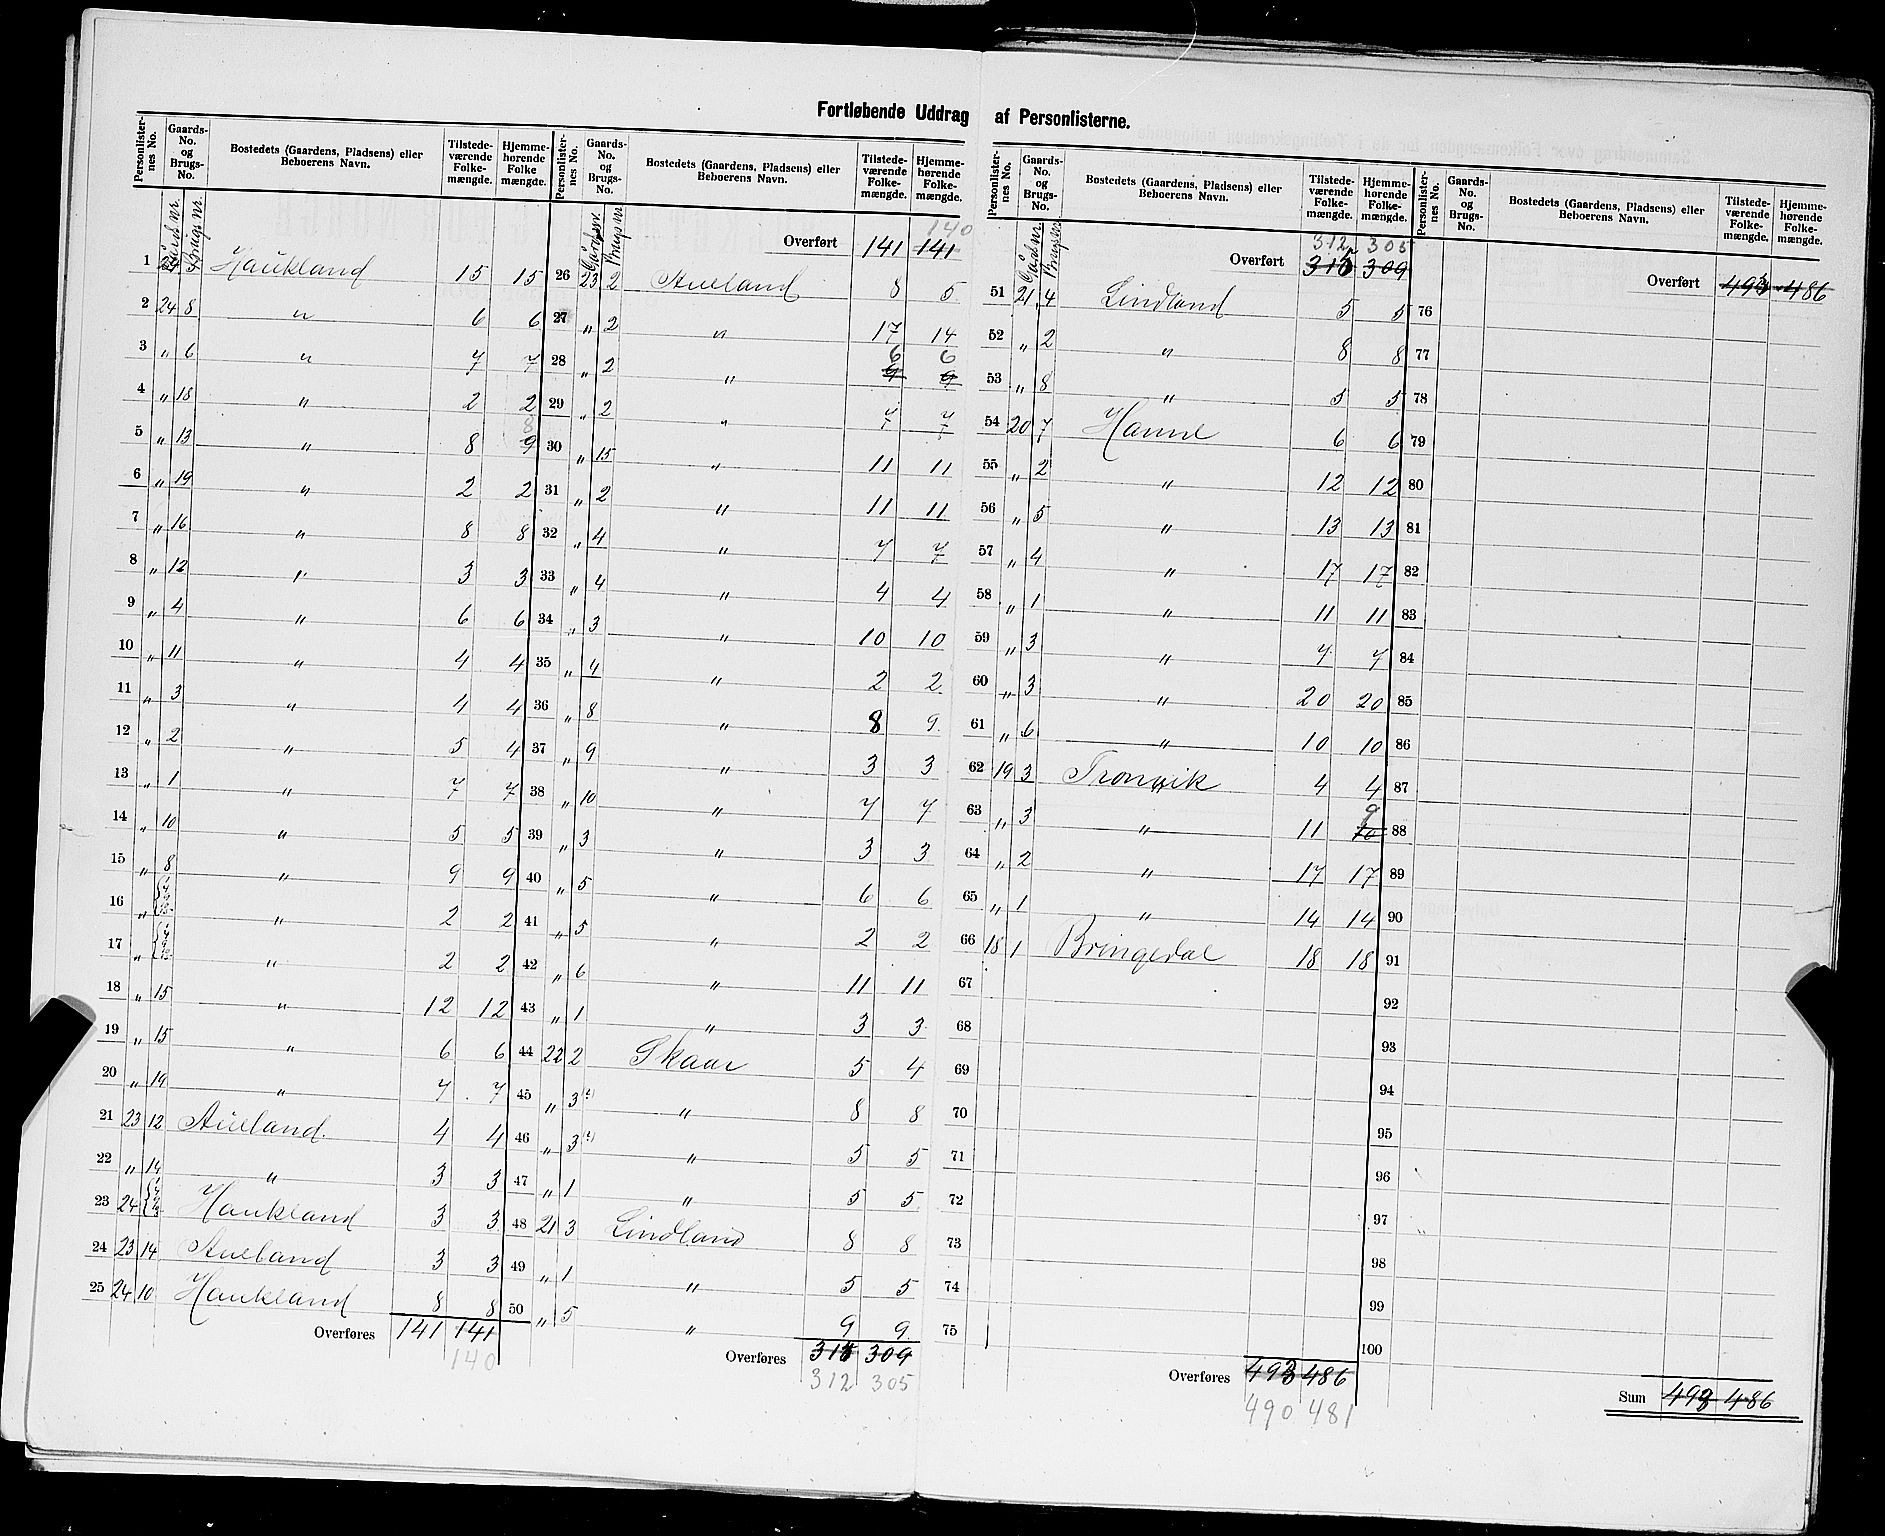 Fortløbende Uddrag af Personlisterne.
Personlister-nes No. | Gaards-No. og Brugs-No. | Bostedets (Gaardens, Pladsens) eller Beboerens Navn. | Tilstede-værende Folke-mængde. | Hjemme-hørende Folke mængde.
Gårdsnr. Brugsnr.
1 24 Haukland 15 15
2 24 8 " 6 6
3 " 6 " 7 7
4 " 18 " 2 2
5 " 13 " 8 9 8
6 " 19 " 2 2
7 " 16 " 8 8
8 " 12 " 3 3
9 " 4 " 6 6
10 " 11 " 4 4
11 " 3 " 4 4
12 " 2 " 5 4
13 " 1 " 7 7
14 " 10 " 5 5
15 " 8 " 9 9
16 " " 2 2
17 " " 2 2
18 " 15 " 12 12
19 " 15 " 6 6
20 " 14 " 7 7
21 23 12 Aueland. 4 4
22 " 14 " 3 3
23 24 Haukland 3 3
24 23 14 Aueland 3 3
25 24 10 Haukland 8 8
Overføres 141 141
140
Personlister-nes No. | Gaards-No. og Brugs-No. | Bostedets (Gaardens, Pladsens) eller Beboerens Navn. | Tilstede-værende Folke-mængde. | Hjemme-hørende Folke-mængde.
Gårdsnr. Brugsnr.
140
Overført 141 141
26 23 2 Aueland 8 5
27 " 2 " 17 14
28 " 2 " 6 6 9 9
29 " 2 " 7 7
30 " 15 " 11 11
31 " 2 " 11 11
32 " 4 " 7 7
33 " 4 " 4 4
34 " 3 " 10 10
35 " 4 " 2 2
36 " 8 " 8 9
37 " 9 " 3 3
38 " 10 " 7 7
39 " 3 " 3 3
40 " 5 " 6 6
41 " 5 " 2 2
42 " 6 " 11 11
43 " 1 " 3 3
44 22 2 Skaar 5 4
45 " 3 " 8 8
46 " 3 " 5 5
47 " 1 " 5 5
48 21 3 Lindland 8 8
49 " 1 " 5 5
50 " 5 " 9 9
Overføres 315 309
312 305
Personlister-nes No. | Gaards-No. og Brugs-No. | Bostedets (Gaardens, Pladsens) eller Beboerens Navn. | Tilstede-værende Folke-mængde. | Hjemme-hørende Folke-mængde.
Gårdsnr. Brugsnr.
312 305
Overført 315 309
51 21 4 Lindland 5 5
52 " 2 " 8 8
53 " 8 " 5 5
54 20 7 Hamre 6 6
55 " 2 " 12 12
56 " 5 " 13 13
57 " 4 " 17 17
58 " 1 " 11 11
59 " 3 " 7 7
60 " 3 " 20 20
61 " 6 " 10 10
62 19 3 Tronvik 4 4
63 " 3 " 11 10 9
64 " 2 " 17 17
65 " 1 " 14 14
66 18 1 Bringedal 18 18
67
68
69
70
71
72
73
74
75
Overføres 493 486
490 481
Personlister-nes No. | Gaards-No. og Brugs-No. | Bostedets (Gaardens, Pladsens) eller Beboerens Navn. | Tilstede-værende Folke-mængde. | Hjemme-hørende Folke-mængde.
Overført 493 486
76
77
78
79
80
81
82
83
84
85
86
87
88
89
90
91
92
93
94
95
96
97
98
99
100
Sum 493 486